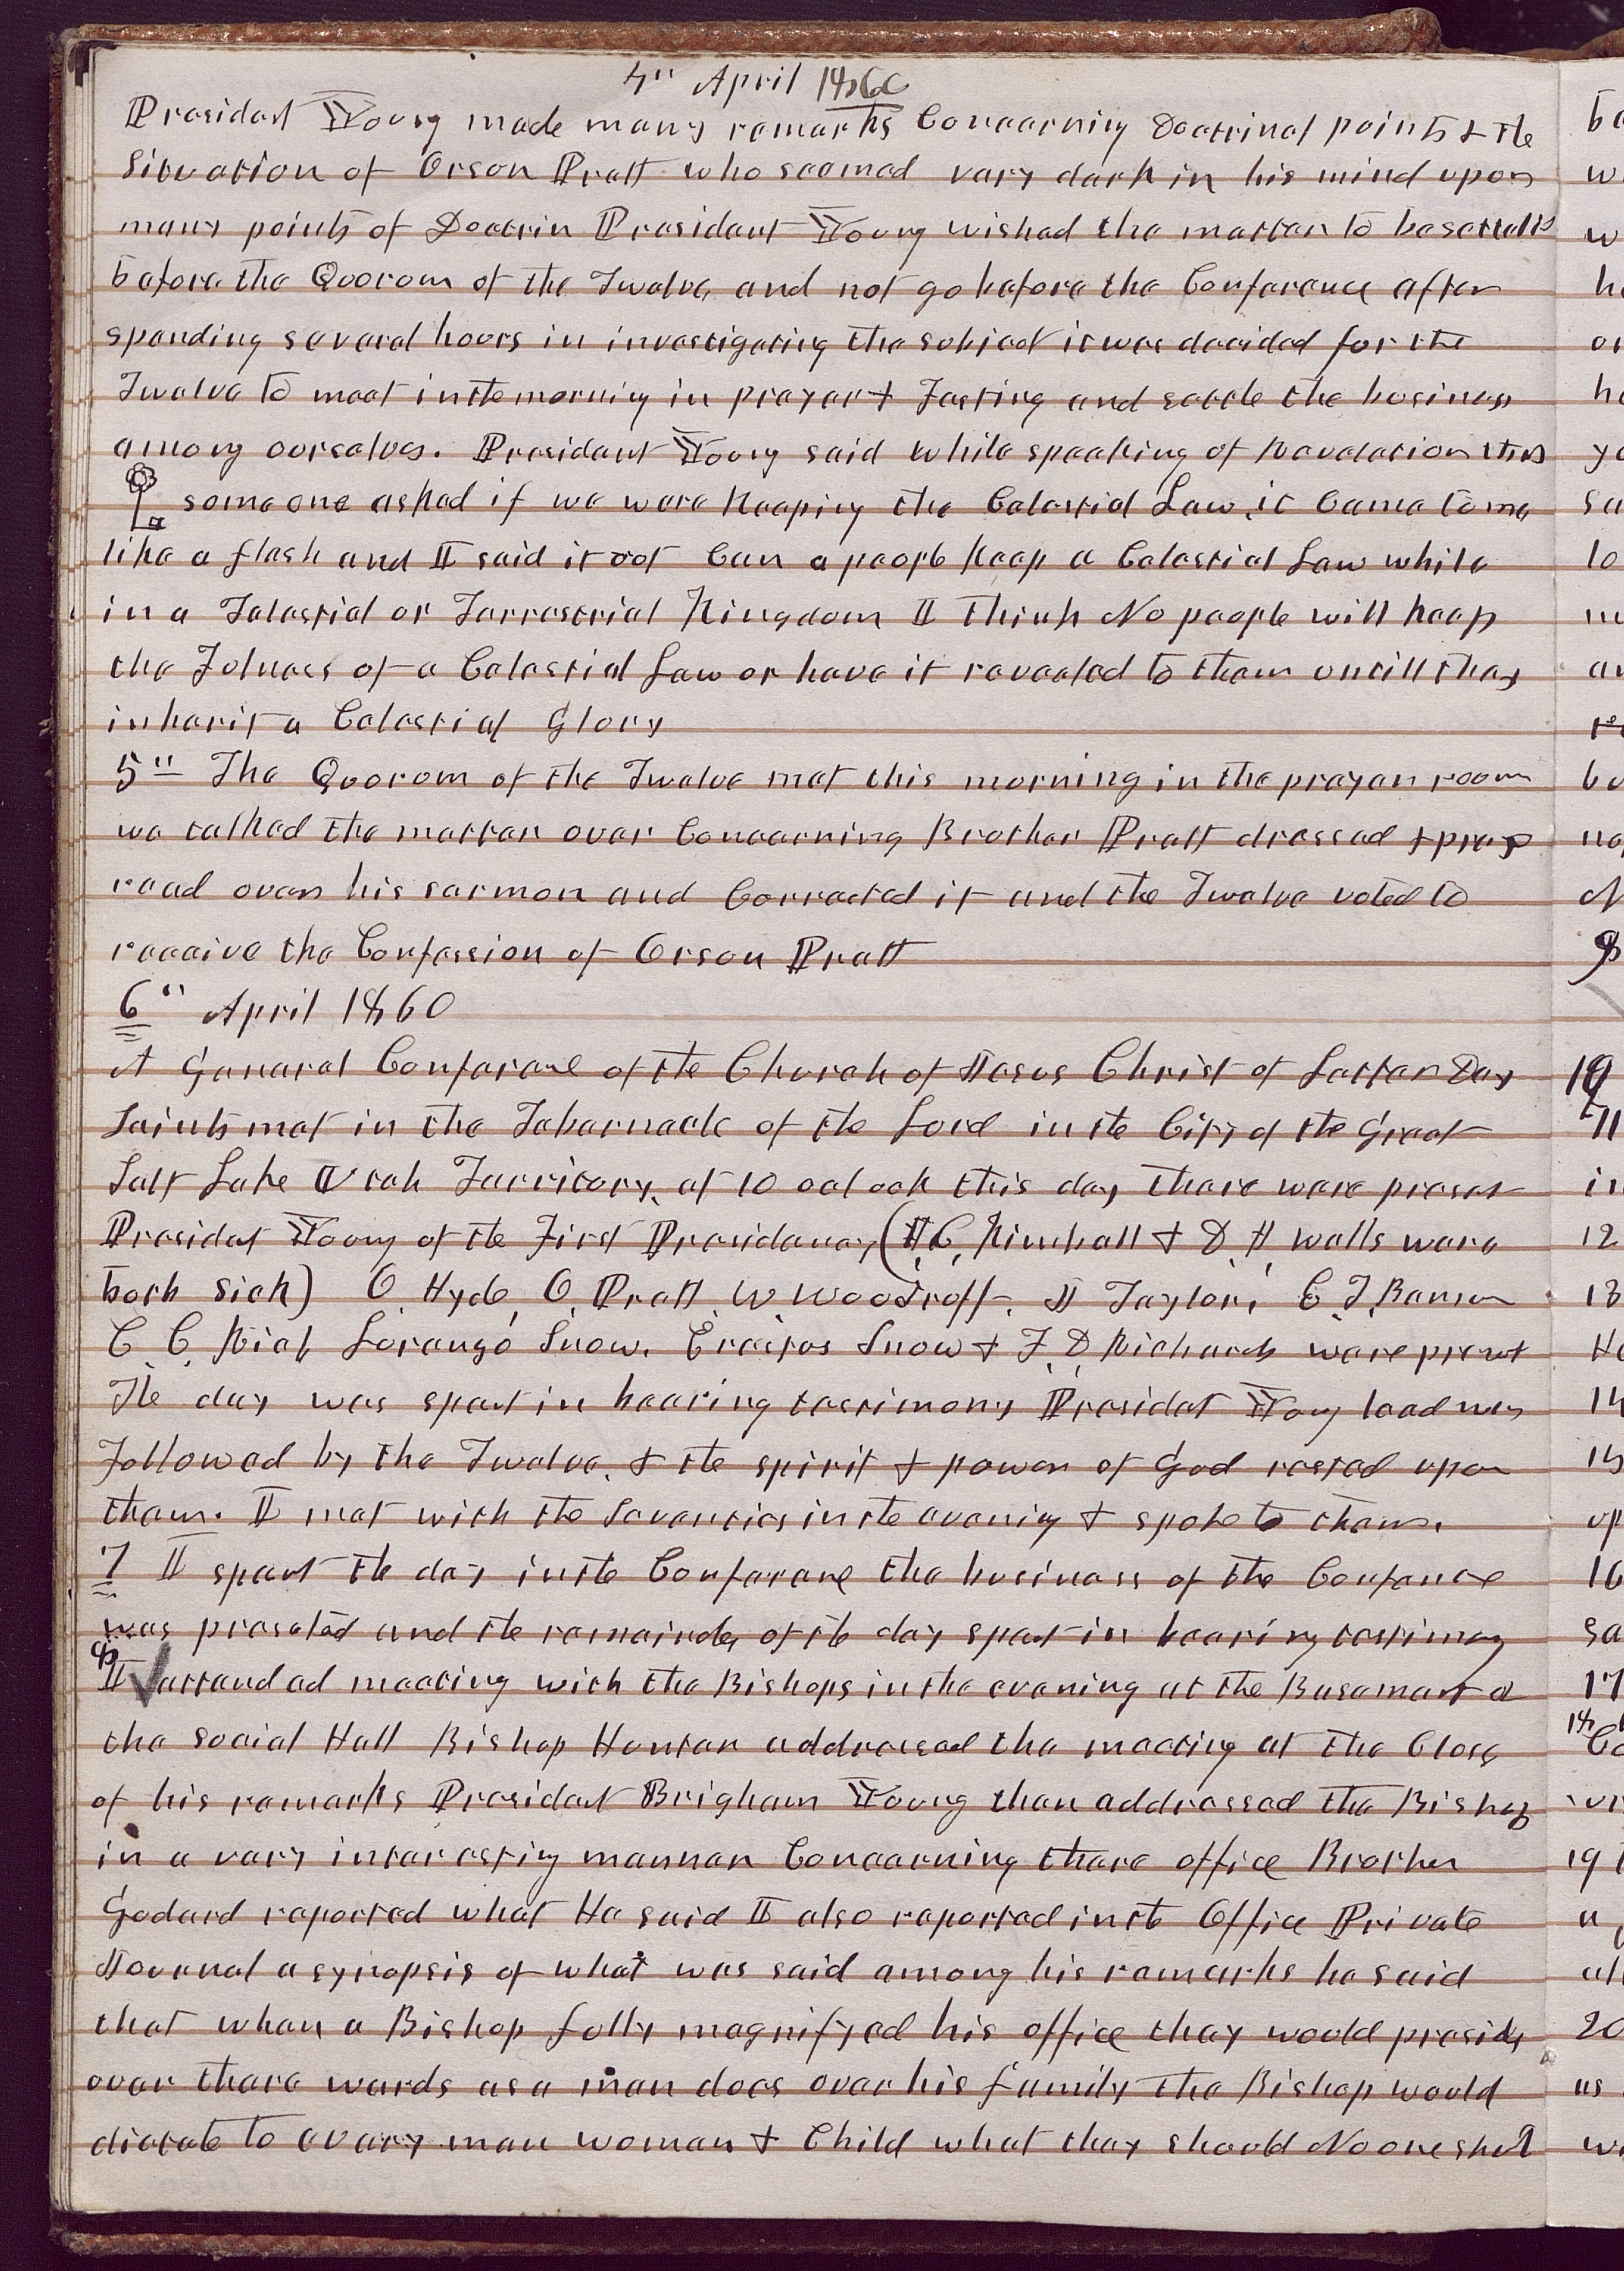 4" April 1860
President Young made many remarks Concerning Doctrinal points & the
Situation of Orson Pratt who seemed very dark in his mind upon
many points of Doctrin President Young wished the matter to be settled
before the Quorum of the Twelve, and not go before the Conference after
spending several hours in investigating the subject it was decided for the
Twelve to meet in the morning in prayer & Fasting and settle the business
among ourselves. President Young said while speaking of Revelation when
some one asked if we were keeping the Celestial Law, it Came to me
like a flash and I said it out Can a people keep a Celestial Law while
in a Telestial or Terrestrial Kingdom I think No people will keep
the Fulness of a Celestial Law or have it revealed to them untill they
inherit a Celestial Glory
5" The Quorum of the Twelve met this morning in the prayer room
we talked the matter over Concerning Brother Pratt dressed & prayed
read over his sermon and Corrected it and the Twelve voted to
receive the Confession of Orson Pratt
6" April 1860
A General Conferane of the Church of Jesus Christ of Latter Day
Saints met in the Tabernacle of the Lord in the City of the Great
Salt Lake Utah Territory, at 10 oclock this day, there were present
Presidet Young of the First Presidency, (H, C, Kimball & D, H, Wells were
both sick) O, Hyde, O, Pratt, W Woodruff, J Taylor, E T, Benson
C, C, Rich Lorenzo Snow. Erastus Snow & F, D, Richards were present
The day was spent in bearing testimony Presidet Young lead us
Followed by the Twelve, & the spirit & power of God rested upon
them. I met with the Seventies in the evening & spoke to them.
7 I spent the day in the Conferane the business of the Confence
was presented and the remainder of the day spent in bearing testimony
I attended meeting with the Bishops in the evening at the Basement of
the Social Hall Bishop Hunter addressed the meeting at the Close
of his remarks President Brigham Young then addressed the Bishops
in a very interesting manner Concerning there office Brother
Godard reported what He said I also reported in the Office Private
Journal a synopsis of what was said among his remarks he said
that when a Bishop fully magnifyed his office they would preside
over there wards as a man does over his family the Bishop would
dictate to every man woman & Child what they should No one should